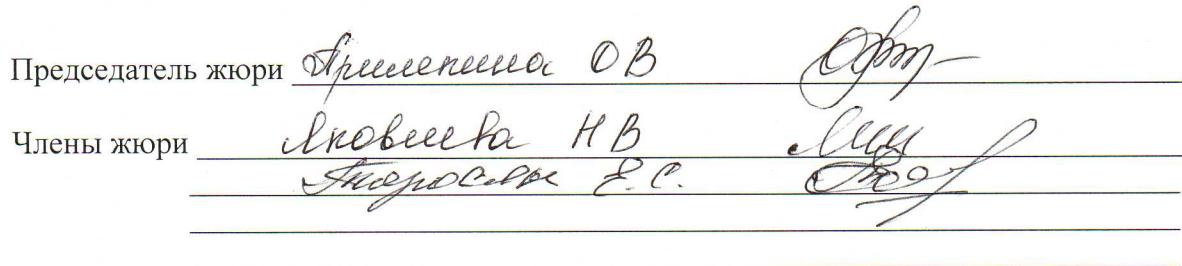 Председатель жюри Прилепина О В
Члены жюри Яковлева Н В
Е.С.